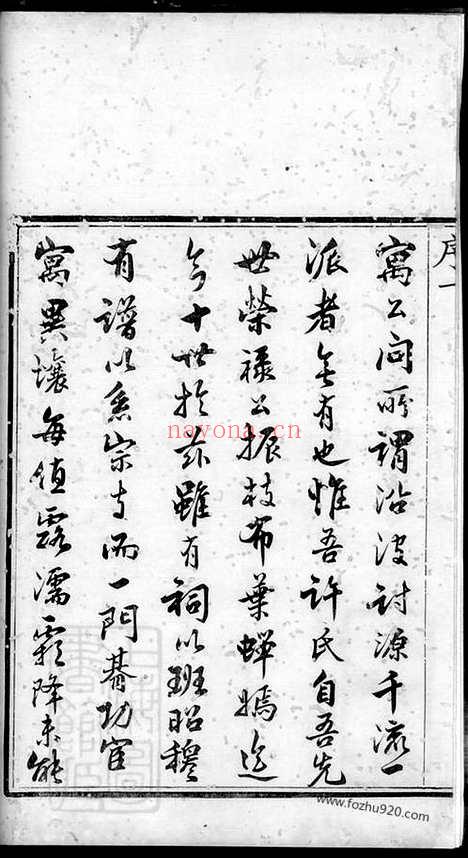 序一
寓公問所謂沿波討源千流一
派者無有也惟吾許氏自吾先
世榮祿公振枝布葉蟬嫣迄
今十世於茲雖有祠以班昭穆
有譜以系宗支而一門朞功宦
寓異壤每值露濡霜降未能
nayona.cn
www.fozhu920.com